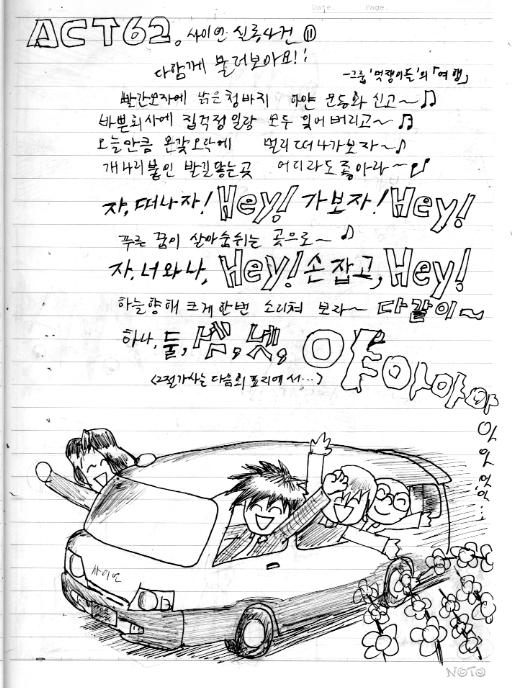 Date. Page.
ACT62. 사이언 실록사건 ⑪
다함께 불러보아요!!
-그룹 '멋쟁이들'의 「여행」
빨간모자에 낡은청바지 하얀 운동화 신고~♫
바쁜회사에 집걱정일랑 모두 잊어버리고~♫
오늘만큼 온갖오락에 멀리떠나가보자~♪
개나리봇짐 발길닿는곳 어디라도좋아라~♫
자, 떠나자! Hey! 가보자! Hey!
푸른 꿈이 살아숨쉬는 곳으로~♪
자, 너와나, Hey! 손잡고, Hey!
하늘향해 크게한번 소리쳐 보라~ 다같이~
하나, 둘, 셋, 넷, 야 아아아
아아...
<2절가사는 다음의 프리에서...>
사이언
NOTO